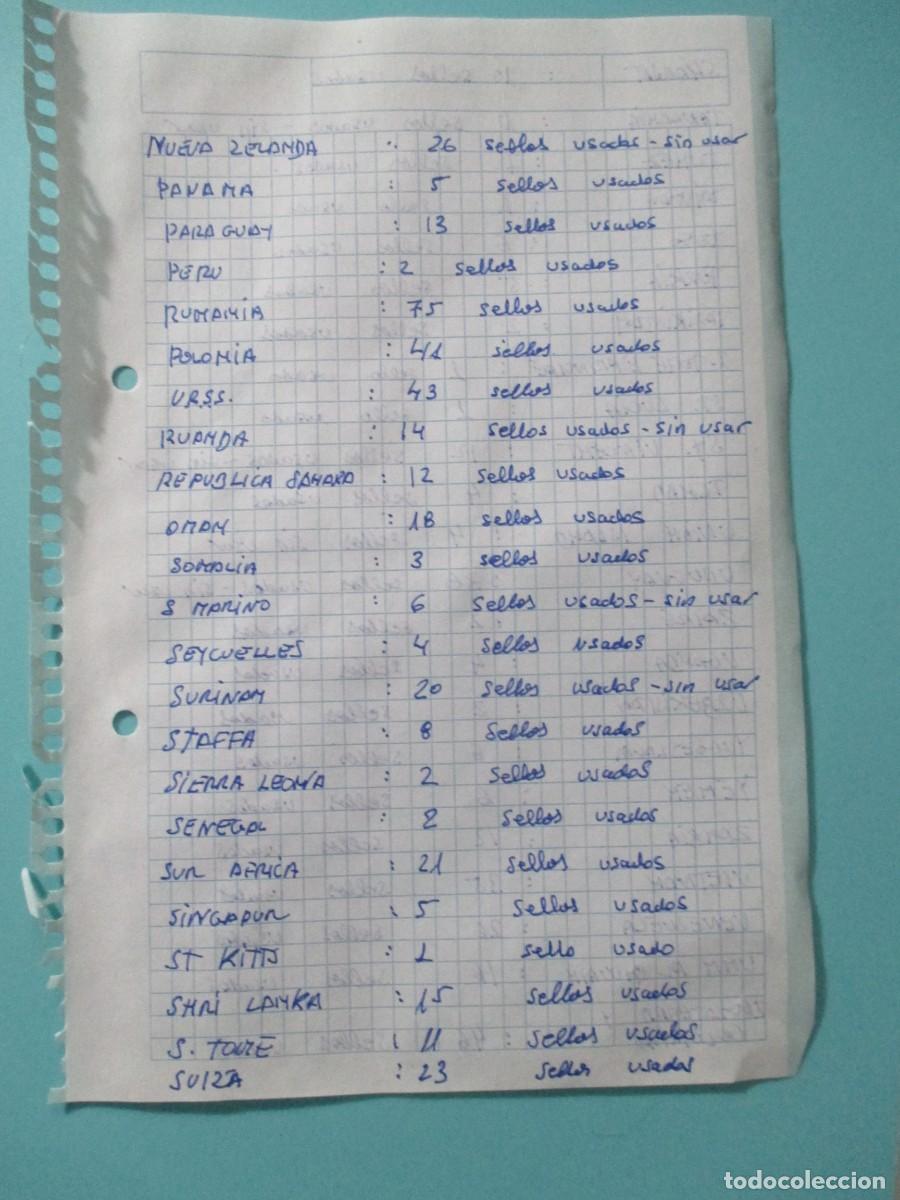 NUEVA ZELANDA : 26 sellos usados - sin usar
PANAMA : 5 sellos usados
PARAGUAY : 13 sellos usados
PERU : 2 sellos usados
RUMANIA : 75 sellos usados
POLONIA : 41 sellos usados
U.R.S.S. : 43 sellos usados
RUANDA : 14 sellos usados - sin usar
REPUBLICA SAHARA : 12 sellos usados
OMAN : 18 sellos usados
SOMALIA : 3 sellos usados
S MARINO : 6 sellos usados - sin usar
SEYCUELLES : 4 sellos usados
SURINAM : 20 sellos usados - sin usar
STAFFA : 8 sellos usados
SIERRA LEONA : 2 sellos usados
SENEGAL : 2 sellos usados
SUR AFRICA : 21 sellos usados
SINGAPUR : 5 sellos usados
ST KITTS : 1 sello usado
SHRI LANKA : 15 sellos usados
S. TOME : 11 sellos usados
SUIZA : 23 sellos usados
todocoleccion